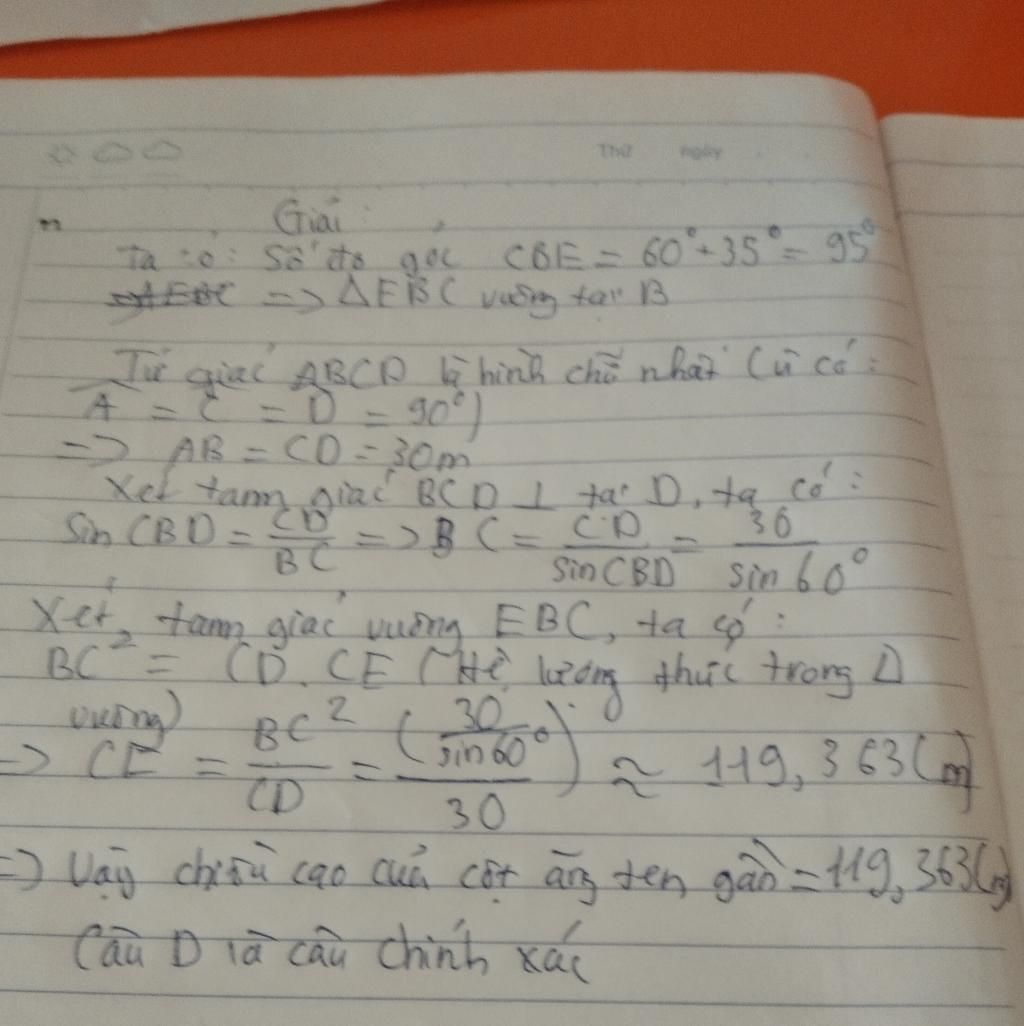 Thứ ngày
Giải:
Ta có: Số đo góc CBE = 60° + 35° = 95°
=> ΔEBC vuông tại B
Tứ giác ABCD là hình chữ nhật (vì có:
A = C = D = 90°)
=> AB = CD = 30m
Xét tam giác BCD ⊥ tại D, ta có:
Sin CBD = CD/BC => BC = CD/sin CBD = 30/sin 60°
Xét tam giác vuông EBC, ta có:
BC² = CD. CE (Hệ lượng thức trong Δ
vuông)
=> CE = BC²/CD = (30/sin 60°)/30 ≈ 119,363(m)
=> Vậy chiều cao của cột ăng ten gần = 119,363(m)
Câu D là câu chính xác